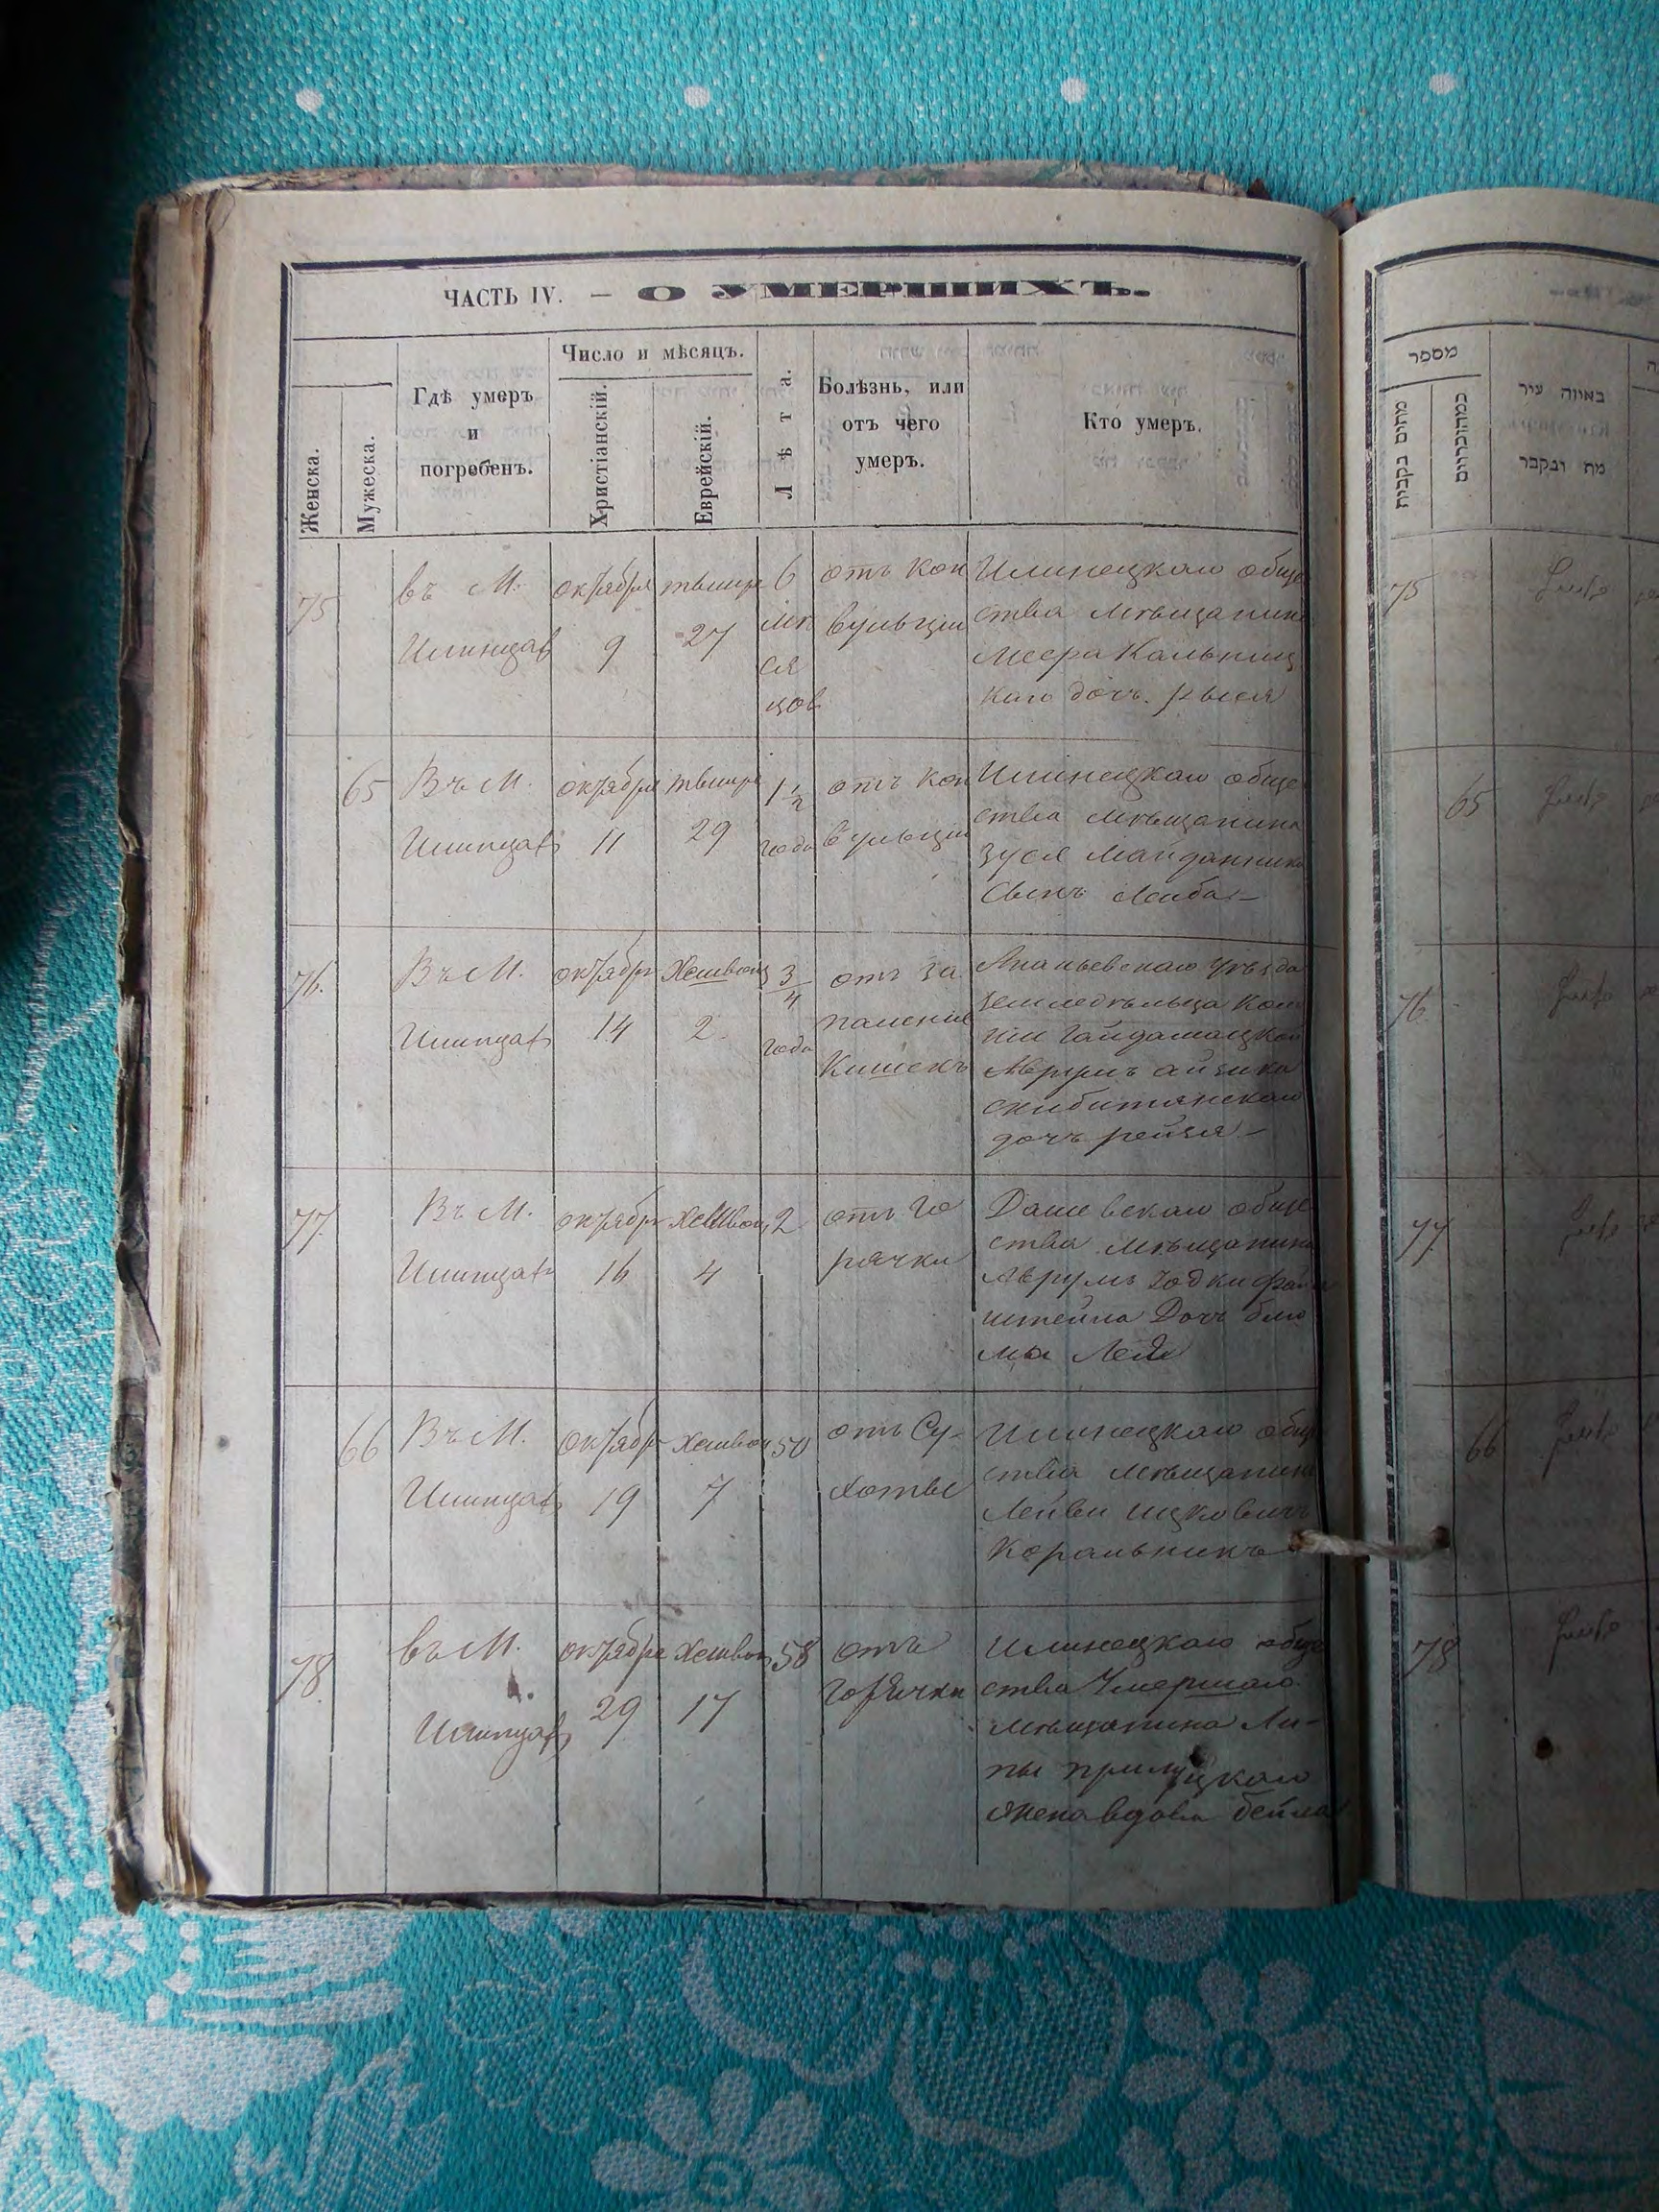 ЧАСТЬ IV. — О УМЕРШИХЪ.
Женска.
Мужеска.
Гдѣ умеръ
и
погребенъ.
Число и мѣсяцъ.
Христіанскій.
Еврейскій.
Лѣта.
Болѣзнь, или
отъ чего
умеръ.
Кто умеръ.
75
въ М.
Илинцах
октября
9
тышре
27
6
мѣ
ся
цов
отъ кон
вульціи
Илинецкаго обще
ства мѣщанина
Меера Кальниц
каго дочь
65
Въ М.
Илинцах
октября
11
тышре
29
1 1/2
года
отъ кон
вульціи
Илинецкаго обще
ства мѣщанина
Зуся Майданника
Сынъ Лейба —
76.
Въ М.
Илинцах
октября
14
Хешвон
2.
3/4
года
отъ за
паления
Кишекъ
Ананьевскаго уѣзда
земледѣльца коло
ніи Гайдамацкой
Аврумъ Айзика
скибитянскаго
дочь рейзя —
77.
Въ М.
Илинцах
октября
16
Хешвон
4
2
отъ го
рячки
Дашевскаго обще
ства мѣщанина
Аврумъ
штейна Дочь блю
ма Лея
66
Въ М.
Илинцах
октября
19
Хешвон
7
50
отъ Су-
хоты
Илинецкаго обще
ства мѣщанина
Лейви Ицковичъ
Коральникъ
78.
въ М.
Илинцах
октября
29
Хешвон
17
58
отъ
горячки
Илинецкаго обще
ства Умершаго
мѣщанина Ли-
пы прилуцкаго
жена вдова бейла
מספר
באיזה עיר
מת ונקבר
75
65
76
77
66
78